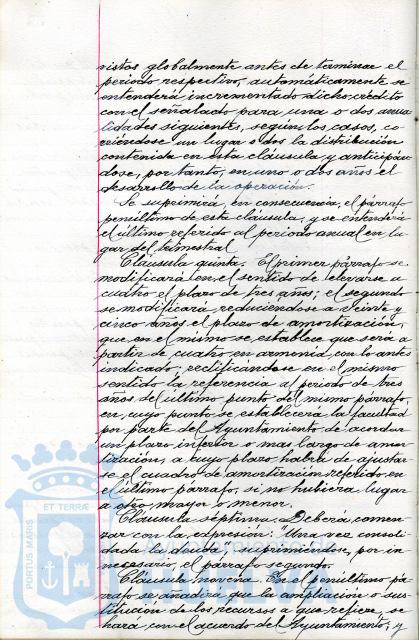 vistos globalmente antes de terminar el
periodo respectivo, automáticamente se
entenderá incrementado dicho crédito
con el señalado para una o dos anua
lidades siguientes, según los casos, co
rriéndose un lugar o dos la distribución
contenida en esta cláusula y anticipán
dose, por tanto, en uno o dos años el
desarrollo de la operación.
Se suprimirá, en consecuencia, el párrafo
penúltimo de esta cláusula, y se entenderá
el último referido al periodo anual en lu
gar del trimestral
Cláusula quinta. El primer párrafo se
modificará en el sentido de elevarse a
cuatro el plazo de tres años; el segundo
se modificará reduciéndose a veinte y
cinco años el plazo de amortización,
que en el mismo se establece que será a
partir de cuatro en armonía con lo antes
indicado, rectificándose en el mismo
sentido la referencia al periodo de tres
años del último punto del mismo párrafo,
en cuyo punto se establecerá la facultad
por parte del Ayuntamiento de acordar
un plazo inferior o mas largo de amor
tización, a cuyo plazo habrá de ajustar
se el cuadro de amortización referido en
el último párrafo, si no hubiera lugar
a otro mayor o menor.
Cláusula séptima. Deberá comen
zar con la expresión "Una vez consoli
dada la deuda" suprimiéndose, por in
necesario, el párrafo segundo.
Cláusula novena. En el penúltimo pá
rrafo se añadirá que la ampliación o sus
titución de los recursos a que refiere, se
hará con el acuerdo del Ayuntamiento; y
PORTUS MARIS
ET TERRÆ